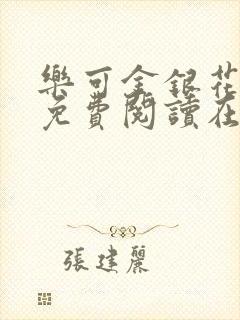 樂可金銀花
免費閱讀在
張建麗